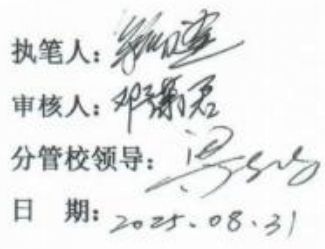 执笔人：
审核人：邓
分管校领导：
日 期：2025.08.31